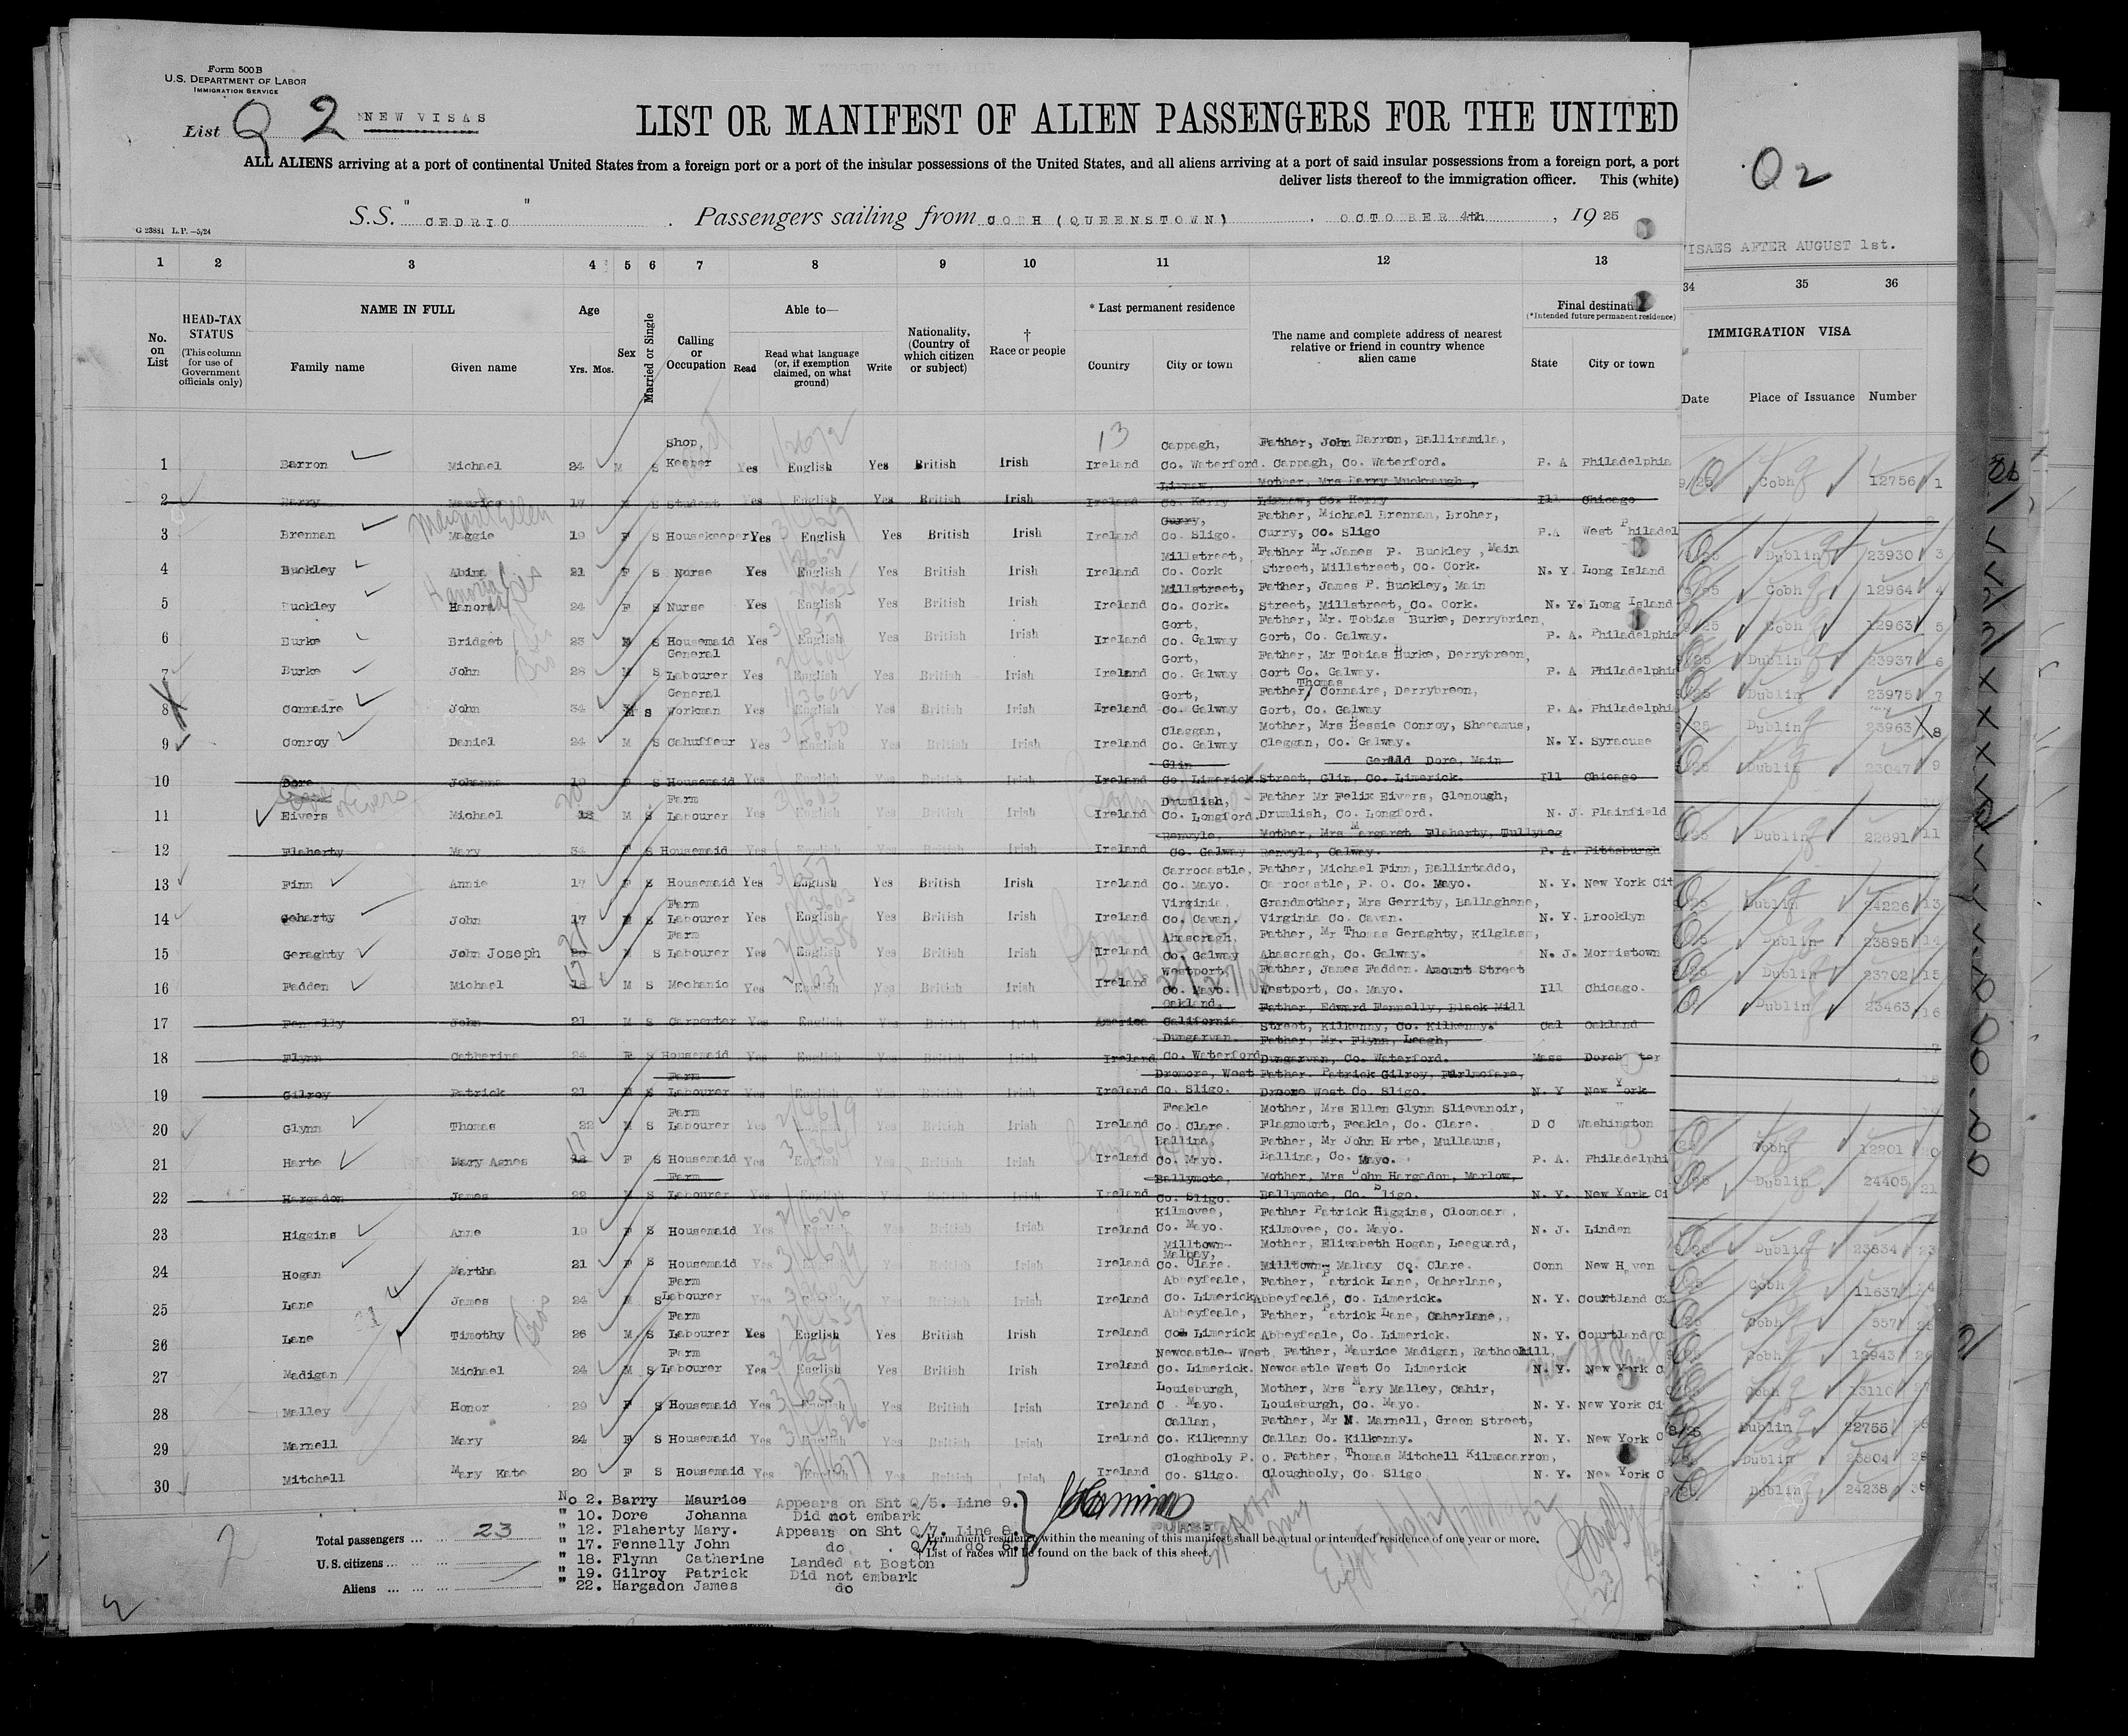 Form 500B
U.S. DEPARTMENT OF LABOR
IMMIGRATION SERVICE
List Q 2 NEW VISAS
LIST OR MANIFEST OF ALIEN PASSENGERS FOR THE UNITED
ALL ALIENS arriving at a port of continental United States from a foreign port or a port of the insular possessions of the United States, and all aliens arriving at a port of said insular possessions from a foreign port, a port
deliver lists thereof to the immigration officer. This (white)
S.S. "CEDRIC" Passengers sailing from COBH (QUEENSTOWN), OCTOBER 4th, 1925
G 23881 L.P.—5/24
Q 2
VISAES AFTER AUGUST 1st.
1 2 3 4 5 6 7 8 9 10 11 12 13 34 35 36
No. on List
HEAD-TAX STATUS
(This column for use of Government officials only)
NAME IN FULL
Family name Given name
Age
Yrs. Mos.
Sex
Married or Single
Calling or Occupation
Able to—
Read
Read what language (or, if exemption claimed, on what ground)
Write
Nationality, (Country of which citizen or subject)
† Race or people
* Last permanent residence
Country City or town
The name and complete address of nearest relative or friend in country whence alien came
Final destination
(*Intended future permanent residence)
State City or town
IMMIGRATION VISA
Date Place of Issuance Number
1 Barron Michael 24 M S Shop, Keeper Yes English Yes British Irish Ireland Cappagh, Co. Waterford. Father, John Barron, Ballinamila, Cappagh, Co. Waterford. P. A Philadelphia Cobh 12756 1
2 Barry Maurice 17 M S Student Yes English Yes British Irish Ireland Lixnaw, Co. Kerry Mother, Mrs Barry Mucknaugh, Lixnaw, Co. Kerry Ill Chicago
3 Brennan Maggie 19 F S Housekeeper Yes English Yes British Irish Ireland Curry, Co. Sligo. Father, Michael Brennan, Broher, Curry, Co. Sligo P.A West Philadel Dublin 23930 3
4 Buckley Abina 21 F S Nurse Yes English Yes British Irish Ireland Millstreet, Co. Cork Father Mr. James P. Buckley, Main Street, Millstreet, Co. Cork. N. Y. Long Island Cobh 12964 4
5 Buckley Hanora 24 F S Nurse Yes English Yes British Irish Ireland Millstreet, Co. Cork. Father, James P. Buckley, Main Street, Millstreet, Co. Cork. N. Y. Long Island Cobh 12963 5
6 Burke Bridget 23 S Housemaid Yes English Yes British Irish Ireland Gort, Co. Galway Father, Mr. Tobias Burke, Derrybrien, Gort, Co. Galway. P. A. Philadelphia Dublin 23937 6
7 Burke John 28 M S General Labourer Yes English Yes British Irish Ireland Gort, Co. Galway Father, Mr Tobias Burke, Derrybreen, Gort Co. Galway. P. A Philadelphia Dublin 23975 7
8 Connaire John 34 M S General Workman Yes English Yes British Irish Ireland Gort, Co. Galway Father, Thomas Connaire, Derrybreen, Gort, Co. Galway P. A. Philadelphia Dublin 23963 8
9 Conroy Daniel 24 M S Cahuffeur Yes English Yes British Irish Ireland Claggan, Co. Galway Mother, Mrs Bessie Conroy, Sheeamus, Cleggan, Co. Galway. N. Y. Syracuse Dublin 23047 9
10 Dore Johanna 19 F S Housemaid Yes English Yes British Irish Ireland Glin Co. Limerick Gerald Dore, Main Street, Glin, Co. Limerick. Ill Chicago
11 Eivers Michael 18 M S Farm Labourer Yes English Yes British Irish Ireland Drumlish, Co. Longford. Father Mr Felix Eivers, Glenough, Drumlish, Co. Longford. N. J. Plainfield Dublin 22891 11
12 Flaherty Mary 34 F S Housemaid Yes English Yes British Irish Ireland Renvyle, Co. Galway Mother, Mrs Margaret Flaherty, Tullybeg Renvyle, Galway. P. A. Pittsburgh
13 Finn Annie 17 F S Housemaid Yes English Yes British Irish Ireland Carrocastle, Co. Mayo. Father, Michael Finn, Ballintaddo, Carrocastle, P. O. Co. Mayo. N. Y. New York Cit Dublin 24226 13
14 Goharty John 17 M S Farm Labourer Yes English Yes British Irish Ireland Virginia, Co. Cavan. Grandmother, Mrs Gerrity, Ballaghene, Virginia Co. Cavan. N. Y. Brooklyn Dublin 23895 14
15 Geraghty John Joseph 20 21 M S Farm Labourer Yes English Yes British Irish Ireland Ahascragh, Co. Galway Father, Mr Thomas Geraghty, Kilglass, Ahascragh, Co. Galway. N. J. Morristown Dublin 23702 15
16 Fadden Michael 18 17 M S Mechanic Yes English Yes British Irish Ireland Westport, Co. Mayo. Father, James Fadden. Amount Street Westport, Co. Mayo. Ill Chicago. Dublin 23463 16
17 Fennelly John 21 M S Carpenter Yes English Yes British Irish America Oakland, California Father, Edward Fennelly, Black Mill Street, Kilkenny, Co. Kilkenny. Cal Oakland
18 Flynn Catherine 24 F S Housemaid Yes English Yes British Irish Ireland Dungarvan. Co. Waterford Father, Mr. Flynn, Leagh, Dungarvan, Co. Waterford. Mass Dorchester
19 Gilroy Patrick 21 M S Farm Labourer Yes English Yes British Irish Ireland Dromore, West Co. Sligo. Father. Patrick Gilroy, Farlmofare, Droore West Co. Sligo. N. Y New York
20 Glynn Thomas 22 M S Farm Labourer Yes English Yes British Irish Ireland Feakle Co. Clare. Mother, Mrs Ellen Glynn Slievanoir, Flagmount, Feakle, Co. Clare. D C Washington Cobh 12201 20
21 Harte Mary Agnes 18 17 F S Housemaid Yes English Yes British Irish Ireland Ballina, Co. Mayo. Father, Mr John Harte, Mullauns, Ballina, Co. Mayo. P. A. Philadelphi Dublin 24405 21
22 Hargadon James 22 M S Farm Labourer Yes English Yes British Irish Ireland Ballymote, Co. Sligo. Mother, Mrs John Hargadon, Marlow, Ballymote, Co. Sligo. N. Y. New York Ci
23 Higgins Anne 19 F S Housemaid Yes English Yes British Irish Ireland Kilmovee, Co. Mayo. Father Patrick Higgins, Clooncara, Kilmovee, Co. Mayo. N. J. Linden Dublin 23834 23
24 Hogan Martha 21 F S Housemaid Yes English Yes British Irish Ireland Milltown-Malbay, Co. Clare. Mother, Elisabeth Hogan, Leeguard, Milltown-Malbay Co. Clare. Conn New Haven Cobh 11637 24
25 Lane James 24 M S Farm Labourer Yes English Yes British Irish Ireland Abbeyfeale, Co. Limerick Father, Patrick Lane, Caherlane, Abbeyfeale, Co. Limerick. N. Y. Courtland Ci Cobh 557
26 Lane Timothy 26 M S Farm Labourer Yes English Yes British Irish Ireland Abbeyfeale, Co. Limerick Father, Patrick Lane, Caherlane, Abbeyfeale, Co. Limerick. N. Y. Courtland C Cobh 12943 26
27 Madigan Michael 24 M S Farm Labourer Yes English Yes British Irish Ireland Newcastle-West, Co. Limerick. Father, Maurice Madigan, Rathcohill, Newcastle West Co Limerick N. Y. New York C Cobh 13110 27
28 Malley Honor 29 F S Housemaid Yes English Yes British Irish Ireland Louisburgh, C. Mayo. Mother, Mrs Mary Malley, Cahir, Louisburgh, Co. Mayo. N. Y. New York Ci Dublin 22755 28
29 Marnell Mary 24 F S Housemaid Yes English Yes British Irish Ireland Callan, Co. Kilkenny Father, Mr M. Marnell, Green Street, Callan Co. Kilkenny. N. Y. New York C Dublin 23804 29
30 Mitchell Mary Kate 20 F S Housemaid Yes English Yes British Irish Ireland Cloghboly P. O. Co. Sligo. Father, Thomas Mitchell Kilmacarron, Cloughboly, Co. Sligo N. Y. New York C Dublin 24238 30
No 2. Barry Maurice Appears on Sht Q/5. Line 9.
" 10. Dore Johanna Did not embark
" 12. Flaherty Mary. Appears on Sht Q/7. Line 8.
" 17. Fennelly John do. Q/7 do 6.
" 18. Flynn Catherine Landed at Boston
" 19. Gilroy Patrick Did not embark
" 22. Hargadon James do
PURSER
Total passengers ... ... 23
U.S. citizens ... ...
Aliens ... ... ...
* Permanent residence within the meaning of this manifest shall be actual or intended residence of one year or more.
† List of races will be found on the back of this sheet.